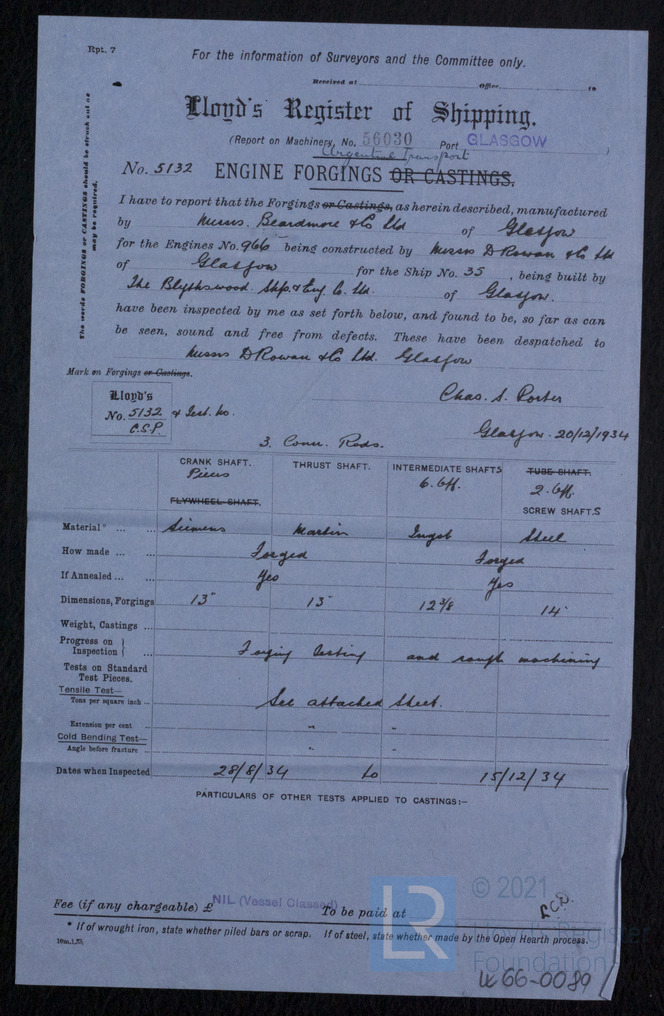 Rpt. 7
For the information of Surveyors and the Committee only.
Received at Office 19
Lloyd's Register of Shipping.
(Report on Machinery, No. 56030 Port GLASGOW )
Argentine Transport
No. 5132 ENGINE FORGINGS OR CASTINGS.
The words FORGINGS or CASTINGS should be struck out as may be required.
I have to report that the Forgings or Castings, as herein described, manufactured
by Messrs. Beardmore & Co Ltd of Glasgow
for the Engines No. 966 being constructed by Messrs D Rowan & Co Ltd
of Glasgow for the Ship No. 35 , being built by
The Blythswood Shp. & Eng Co. Ltd. of Glasgow.
have been inspected by me as set forth below, and found to be, so far as can
be seen, sound and free from defects. These have been despatched to
Messrs D Rowan & Co Ltd. Glasgow
Mark on Forgings or Castings.
Chas. S. Porter
Lloyd's
No. 5132 & Test. No.
C.S.P.
Glasgow. 20/12/1934
3. Conn. Rods.
CRANK SHAFT. THRUST SHAFT. INTERMEDIATE SHAFTS TUBE SHAFT.
Pieces 6. Off. 2. Off.
FLYWHEEL SHAFT. SCREW SHAFTS
Material* ... ... Siemens Martin Ingot Steel
How made ... ... Forged Forged
If Annealed ... ... Yes Yes
Dimensions, Forgings 13" 13" 12 3/8 14"
Weight, Castings ...
Progress on } Inspection } ... Forging testing and rough machining
Tests on Standard
Test Pieces.
Tensile Test—
Tons per square inch - See attached Sheet.
Extension per cent .. " "
Cold Bending Test—
Angle before fracture .. " "
Dates when Inspected 28/8/34 to 15/12/34
PARTICULARS OF OTHER TESTS APPLIED TO CASTINGS:—
Fee (if any chargeable) £ NIL (Vessel Classed) To be paid at
* If of wrought iron, state whether piled bars or scrap. If of steel, state whether made by the Open Hearth process.
LR
© 2021
Lloyd's Register
Foundation
W66-0089